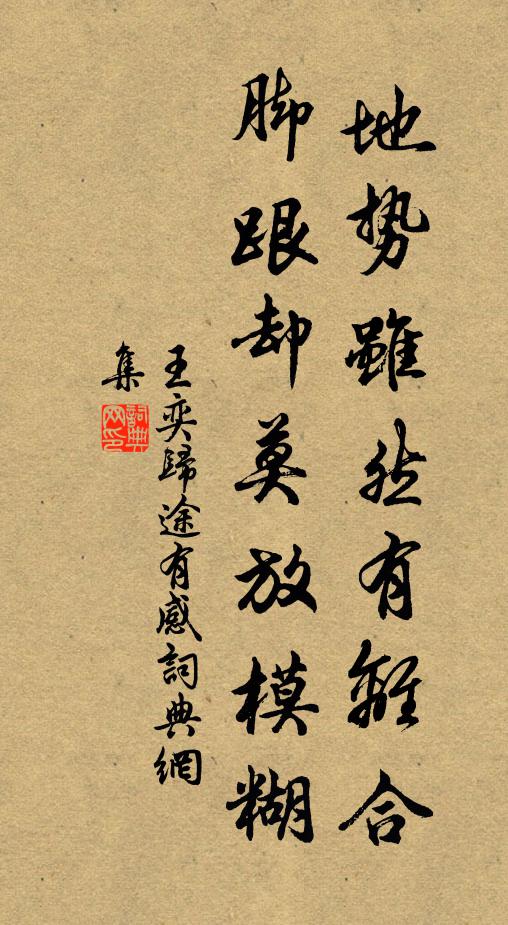 地勢雖然有離合
脚跟却莫放模糊
王奕歸途有感詞典網
集
詞典网印